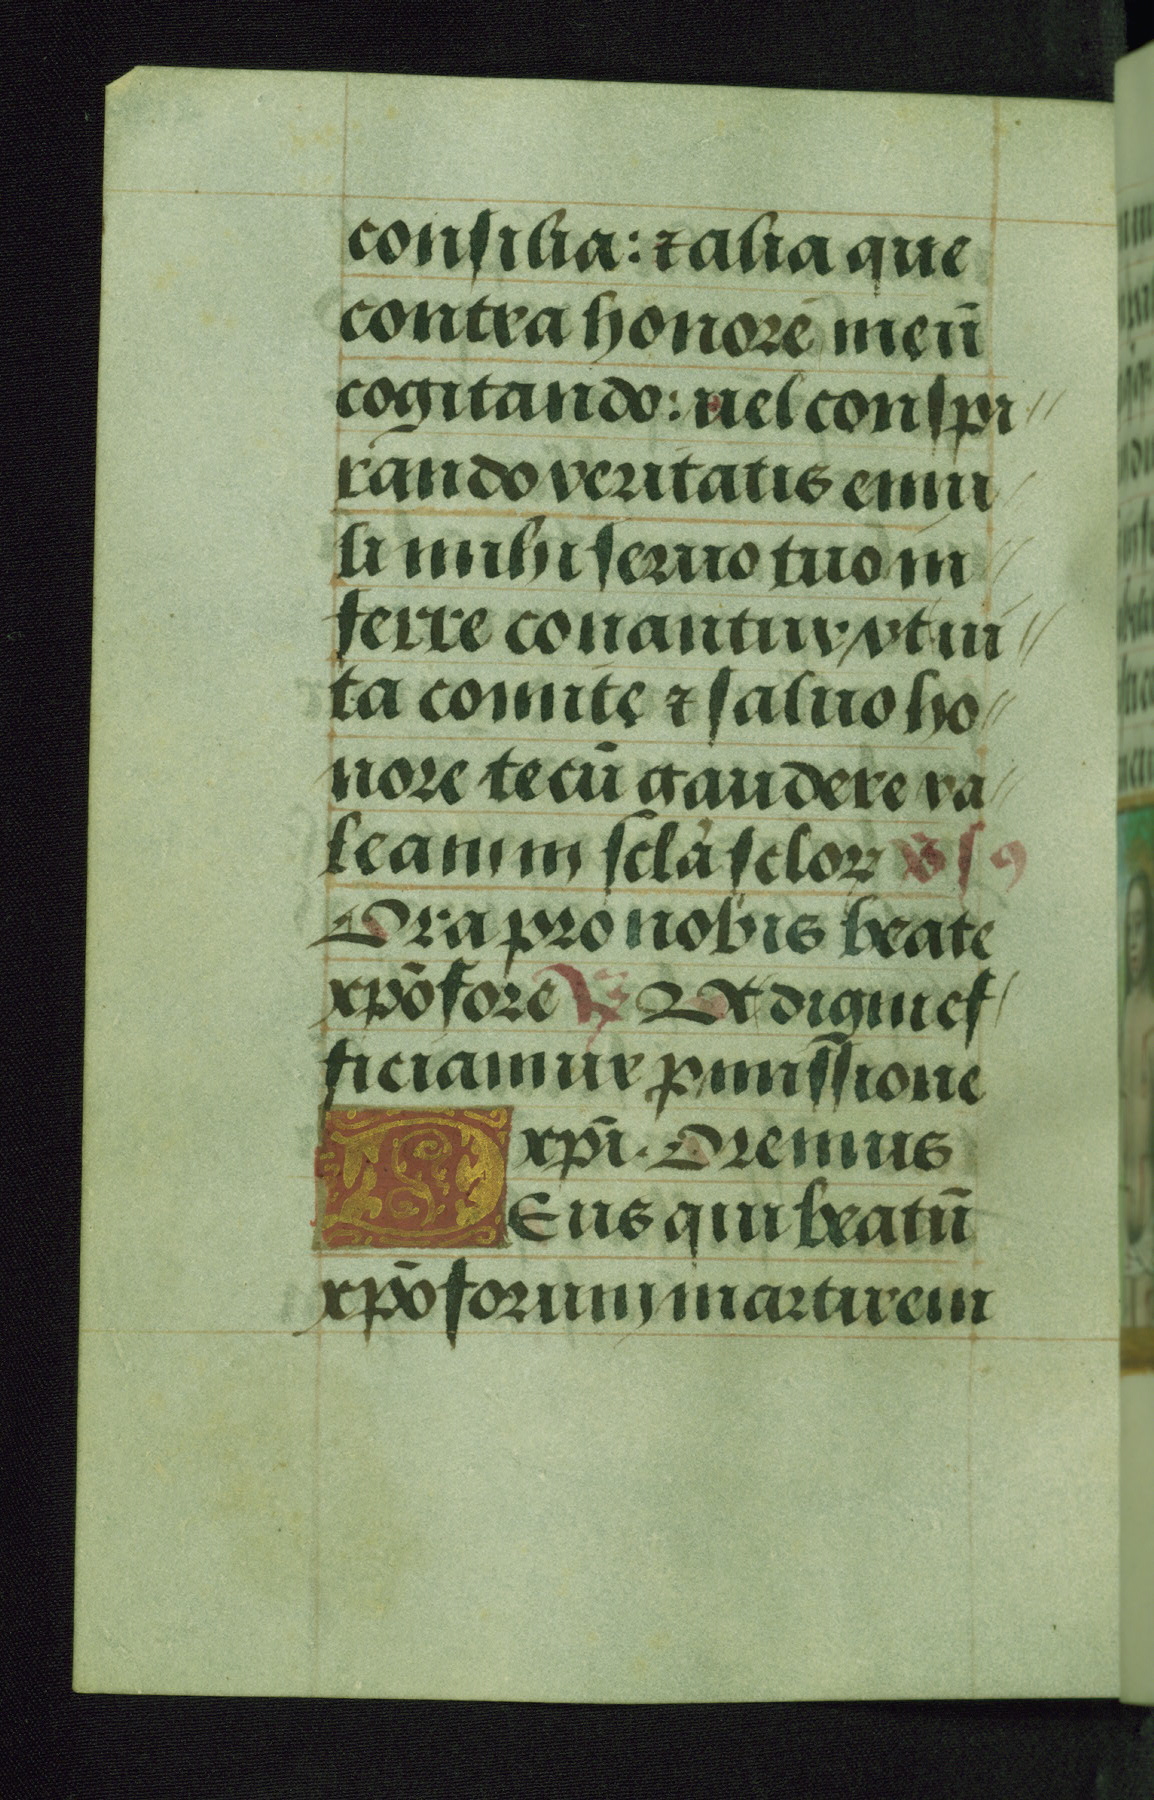 consilia: ⁊ alia que
contra honorē meū
cogitando: uel conspi
rando veritatis emu
li mihi seruo tuo in
ferre conantur/ vt ui
ta comite ⁊ saluo ho
nore tecū gaudere va
leam in scła sclor ℣s9
Ora pro nobis beate
xpōfore ℟ Ut digni ef
ficiamur ꝓmissione
xpī. Oremus
DEus qui beatū
xpōforum martirem